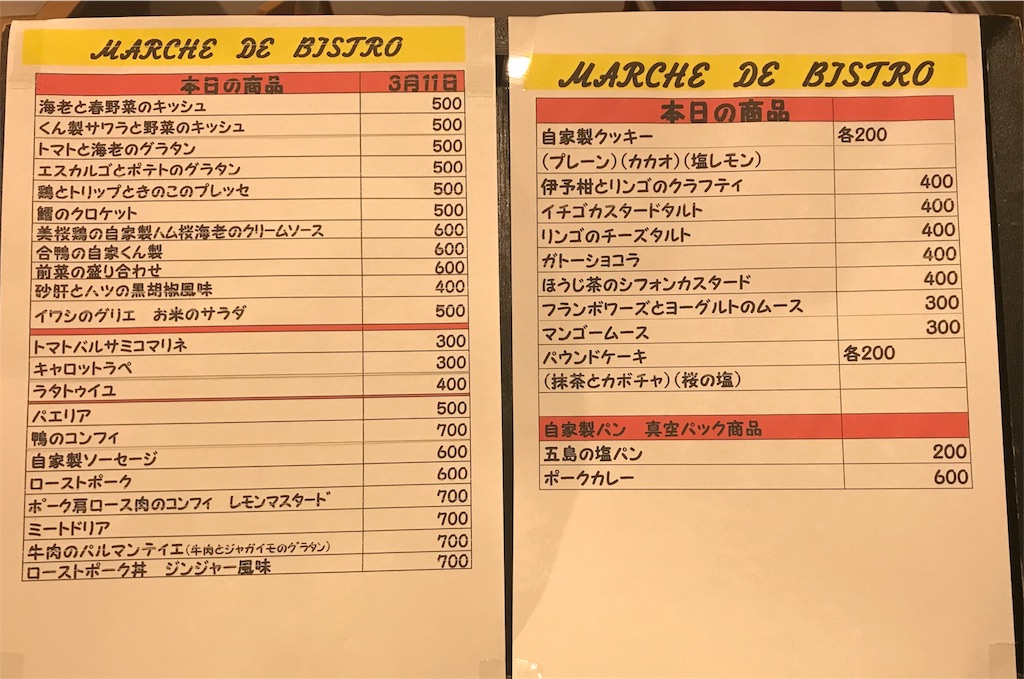 MARCHE DE BISTRO
本日の商品 3月11日
海老と春野菜のキッシュ 500
くん製サワラと野菜のキッシュ 500
トマトと海老のグラタン 500
エスカルゴとポテトのグラタン 500
鶏とトリップときのこのプレッセ 500
鱈のクロケット 500
美桜鶏の自家製ハム桜海老のクリームソース 600
合鴨の自家くん製 600
前菜の盛り合わせ 600
砂肝とハツの黒胡椒風味 400
イワシのグリエ お米のサラダ 500
トマトバルサミコマリネ 300
キャロットラペ 300
ラタトゥイユ 400
パエリア 500
鴨のコンフィ 700
自家製ソーセージ 600
ローストポーク 600
ポーク肩ロース肉のコンフィ レモンマスタード 700
ミートドリア 700
牛肉のパルマンティエ(牛肉とジャガイモのグラタン) 700
ローストポーク丼 ジンジャー風味 700
MARCHE DE BISTRO
本日の商品
自家製クッキー 各200
(プレーン)(カカオ)(塩レモン)
伊予柑とリンゴのクラフティ 400
イチゴカスタードタルト 400
リンゴのチーズタルト 400
ガトーショコラ 400
ほうじ茶のシフォンカスタード 400
フランボワーズとヨーグルトのムース 300
マンゴームース 300
パウンドケーキ 各200
(抹茶とカボチャ)(桜の塩)
自家製パン 真空パック商品
五島の塩パン 200
ポークカレー 600